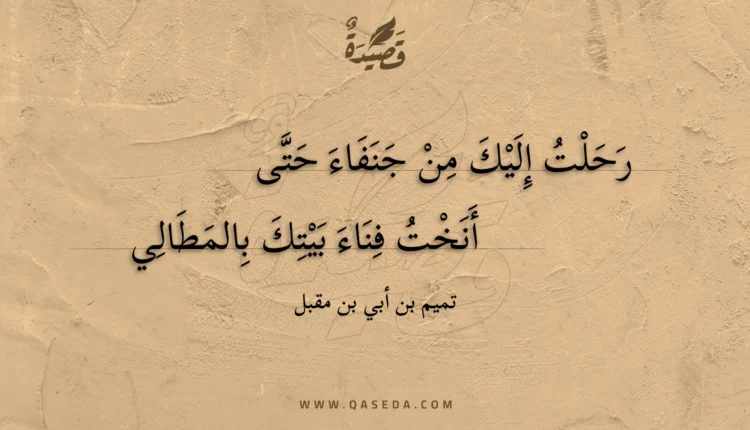 قَصِيْدَةٌ
رَحَلْتُ إِلَيْكَ مِنْ جَنَفَاءَ حَتَّى
أَنَخْتُ فِنَاءَ بَيْتِكَ بِالمَطَالِي
تميم بن أبي بن مقبل
WWW.QASEDA.COM